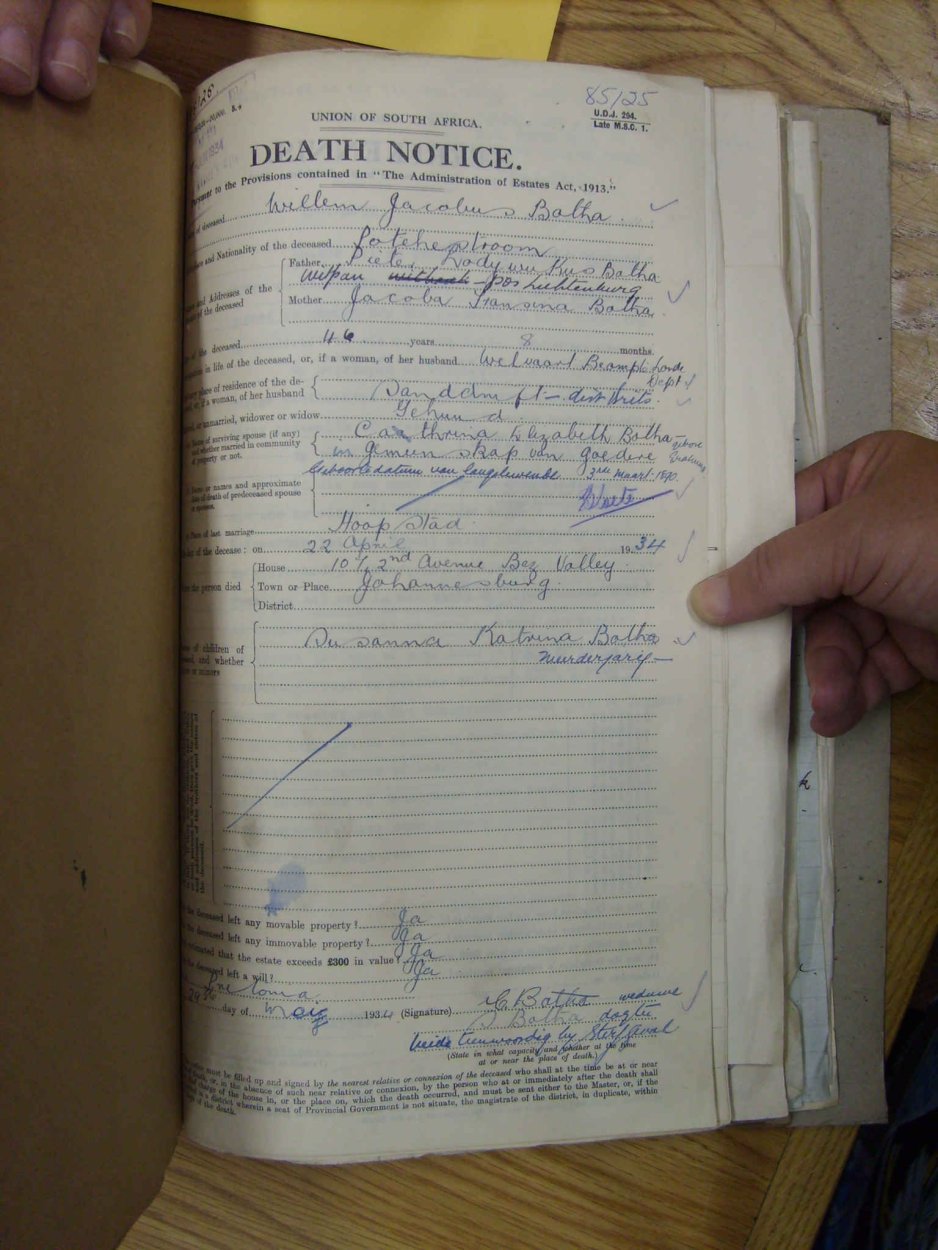 85/25
U.D.J. 294.
Late M.S.C. 1.
UNION OF SOUTH AFRICA.
DEATH NOTICE.
to the Provisions contained in "The Administration of Estates Act, 1913."
of deceased Willem Jacobus Botha
and Nationality of the deceased Potchefstroom
Father Pieter Lodywikus Botha
Witpan pos Lichtenburg
and Addresses of the
of the deceased
Mother Jacoba Fransina Botha
of the deceased 46 years 8 months.
in life of the deceased, or, if a woman, of her husband Welvaart Beampte Lands
Dept
place of residence of the de-
a woman, of her husband
Zanddrift - dist Brits.
unmarried, widower or widow Gehuud
of surviving spouse (if any)
whether married in community
of property or not.
Cathrina Elizabeth Botha gebore
in gemeenskap van goedere
Geboortedatum van langslewende 3rde Maart 1890.
or names and approximate
of death of predeceased spouse
Place of last marriage Hoopstad
of the decease: on 22 April 1934
House 107, 2nd Avenue Bez Valley
the person died
Town or Place Johannesburg
District
of children of
and whether
or minors
Susanna Katrina Botha
meerderjarig
the deceased left any movable property? Ja
the deceased left any immovable property? Ja
estimated that the estate exceeds £300 in value? Ja
the deceased left a will? Ja
Pretoria
29ste day of Mei 1934 (Signature) C Botha weduwe
S Botha dogter
beide teenwoordig by Sterfgeval
(State in what capacity and whether at the time
at or near the place of death.)
must be filled up and signed by the nearest relative or connexion of the deceased who shall at the time be at or near
death, or, in the absence of such near relative or connexion, by the person who at or immediately after the death shall
charge of the house in, or the place on, which the death occurred, and must be sent either to the Master, or, if the
a district wherein a seat of Provincial Government is not situate, the magistrate of the district, in duplicate, within
of the death.